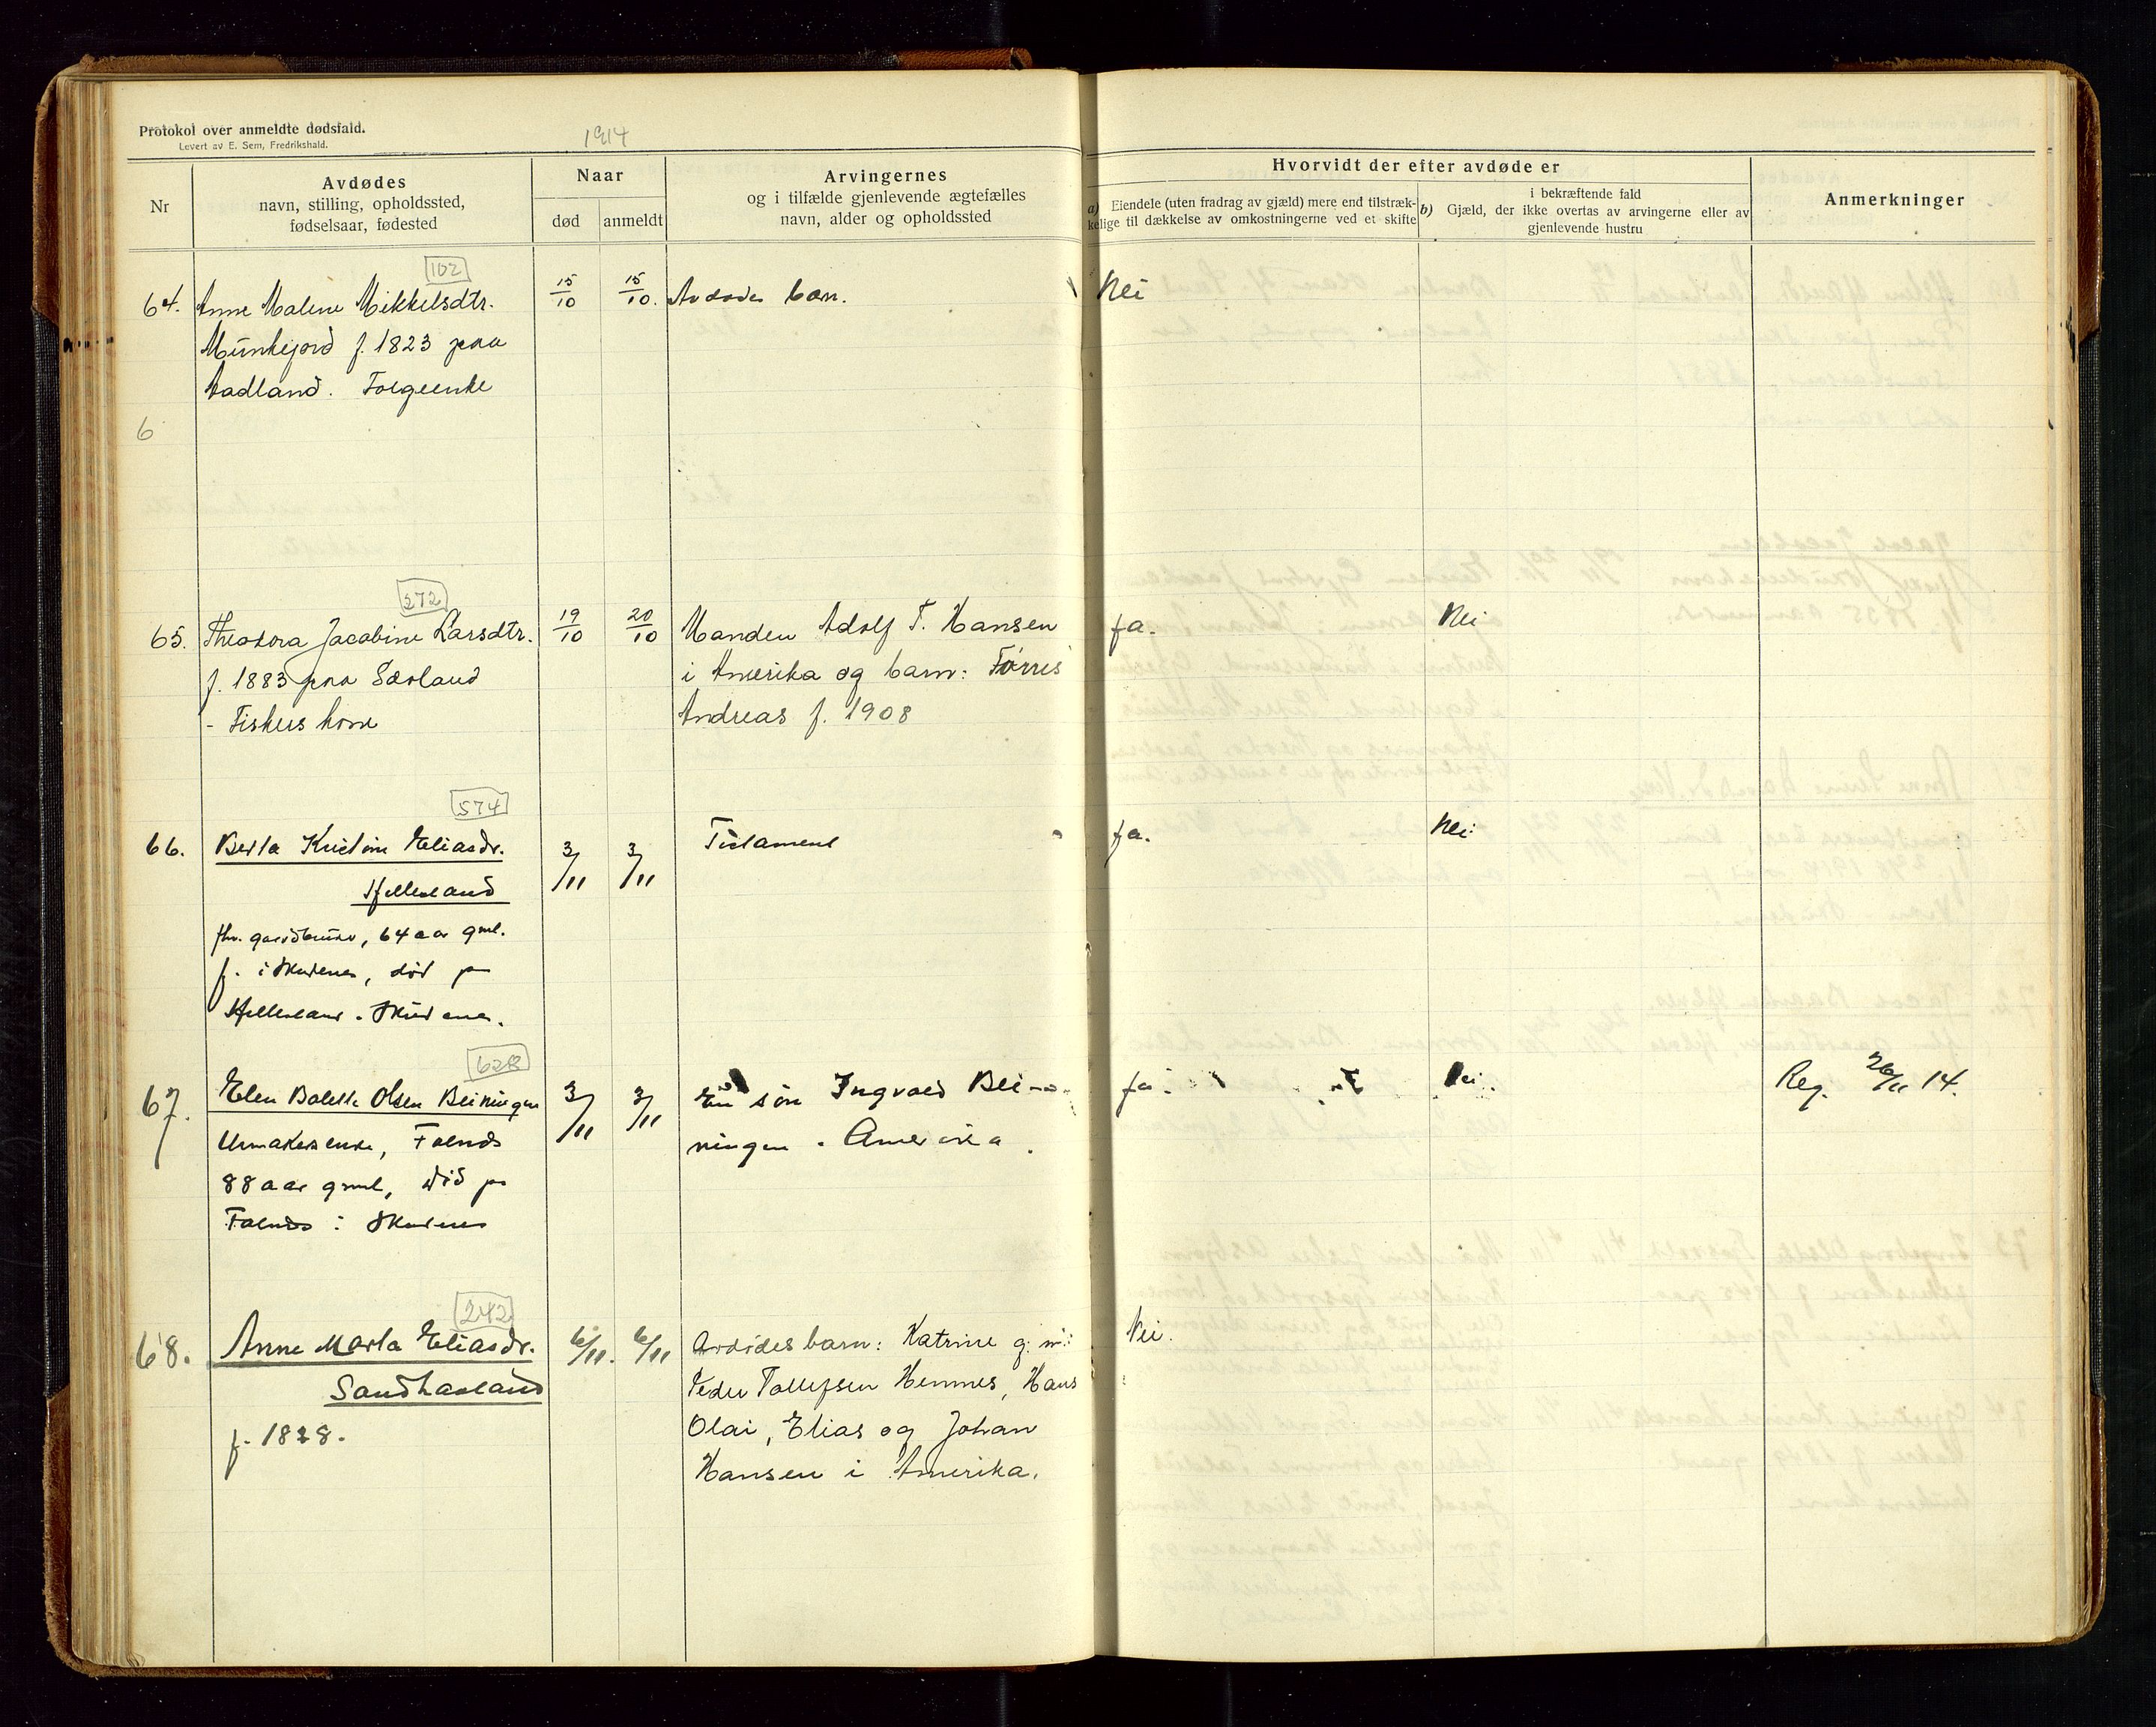 Protokol over anmeldte dødsfald.
Levert av E. Sem, Fredrikshald.
1914
Nr
Avdødes
navn, stilling, opholdssted,
fødselsaar, fødested
Naar
død
anmeldt
Arvingernes
og i tilfælde gjenlevende ægtefælles
navn, alder og opholdssted
Hvorvidt der efter avdøde er
a) Eiendele (uten fradrag av gjæld) mere end tilstræk-
kelige til dækkelse av omkostningerne ved et skifte
b) i bekræftende fald
Gjæld, der ikke overtas av arvingerne eller av
gjenlevende hustru
Anmerkninger
102
64. Anne Malene Mikkelsdtr. 15/10 15/10. Avdødes barn. Nei
Munkejord f. 1823 paa
Aadland. Folgeenke
6
272
65. Theodora Jacobine Larsdtr. 19/10 20/10 Manden Adolf T. Hansen Ja. Nei
f. 1883 paa Sævland i Amerika og barn: Torris
- Fiskers kone Andreas f. 1908
574
66. Berta Kristine Eliasdr. 3/11 3/11 Testament Ja. Nei
Hellesland
fhv. gaardbruker, 64 aar gml.
f. i Skudenes, død på
Hellesland i Skudenes.
628
67. Elen Bolette Olsen Beiningen 3/11 3/11 En søn Ingvald Bei- Ja. Nei. Reg. 26/11 14.
Urmakerenke, Falnes ningen i Amerika.
88 aar gml, død på
Falnes i Skudenes
242
68. Anne Marta Eliasdr. 6/11. 6/11 Avdødes barn: Katrine g. m: Nei.
Sandhaaland Peder Tollefsen Hemnes, Hans
f. 1828. Olai, Elias og Johan
Hansen i Amerika.